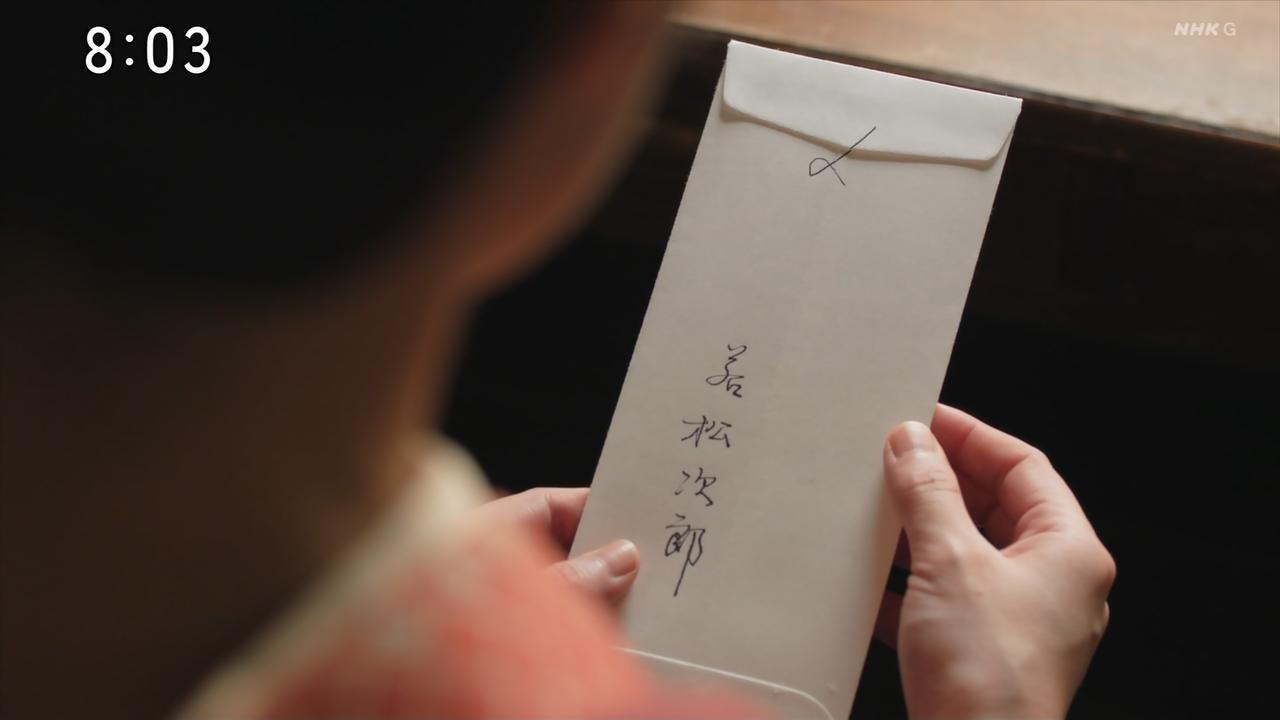 8:03
NHK G
〆
若松次郎